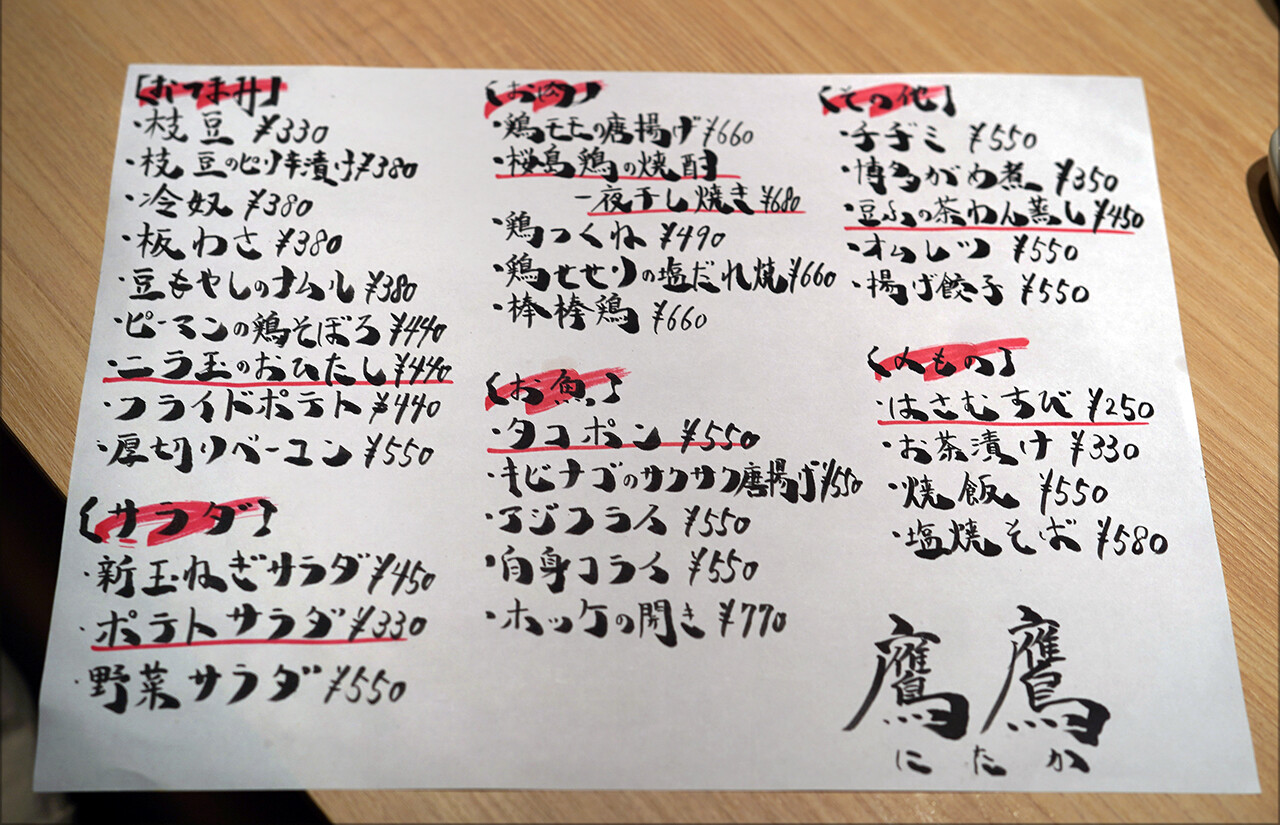 【おつまみ】
・枝豆 ¥330
・枝豆のピリ辛漬け¥380
・冷奴 ¥380
・板わさ ¥380
・豆もやしのナムル ¥380
・ピーマンの鶏そぼろ ¥440
・ニラ玉のおひたし ¥440
・フライドポテト ¥440
・厚切りベーコン ¥550
【サラダ】
・新玉ねぎサラダ ¥450
・ポテトサラダ ¥330
・野菜サラダ ¥550
【お肉】
・鶏モモの唐揚げ ¥660
・桜島鶏の焼酎
一夜干し焼き ¥680
・鶏つくね ¥490
・鶏せせりの塩だれ焼 ¥660
・棒棒鶏 ¥660
【お魚】
・タコポン ¥550
・キビナゴのサクサク唐揚げ ¥550
・アジフライ ¥550
・白身フライ ¥550
・ホッケの開き ¥770
【その他】
・チヂミ ¥550
・博多がめ煮 ¥350
・豆ふの茶わん蒸し ¥450
・オムレツ ¥550
・揚げ餃子 ¥550
【〆もの】
・はさむすび ¥250
・お茶漬け ¥330
・焼飯 ¥550
・塩焼そば ¥580
鷹鷹
にたか